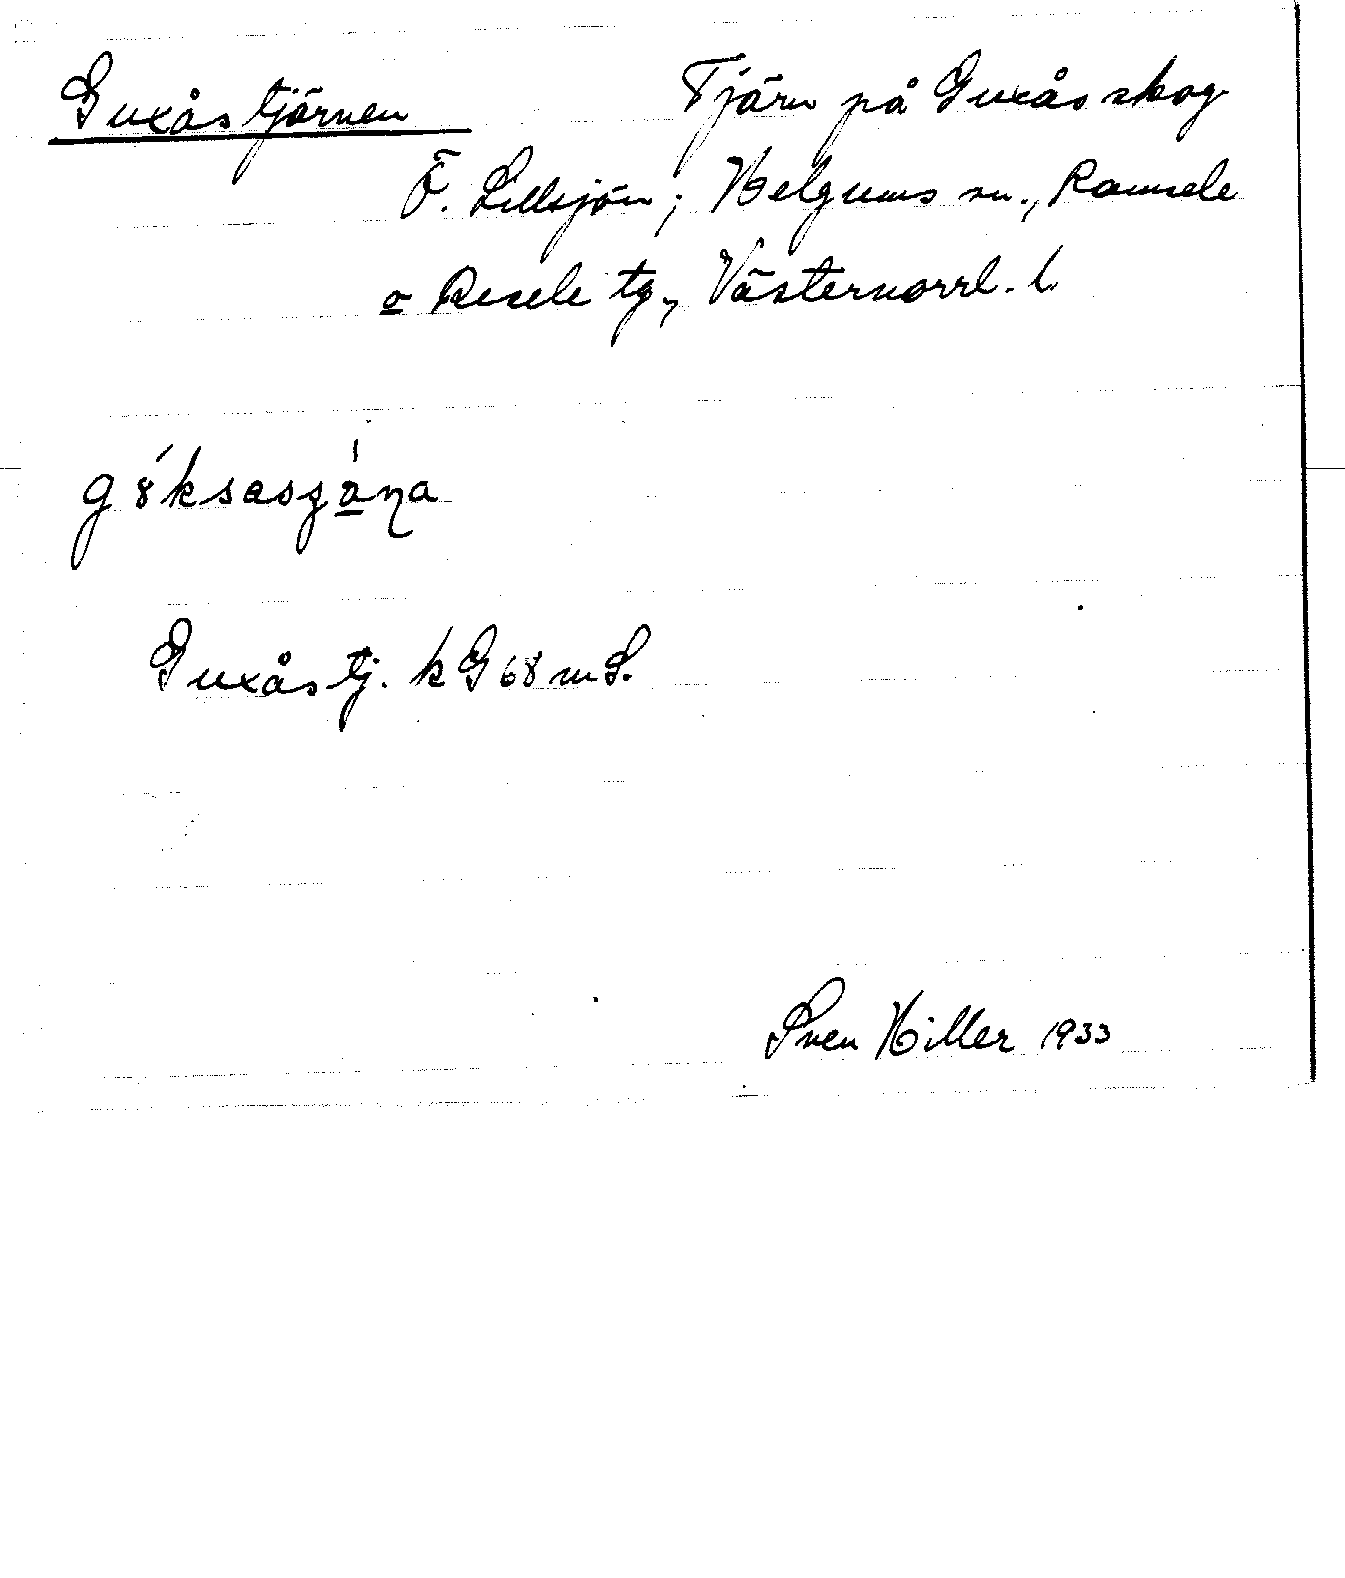 Guxåstjärnen Tjärn på Guxås skog
Ö. Lillsjön; Helgums sn., Ramsele
o Resele tg, Västernorrl. l.
Guxåstj. k G 68 m S.
Sven Hiller 1933